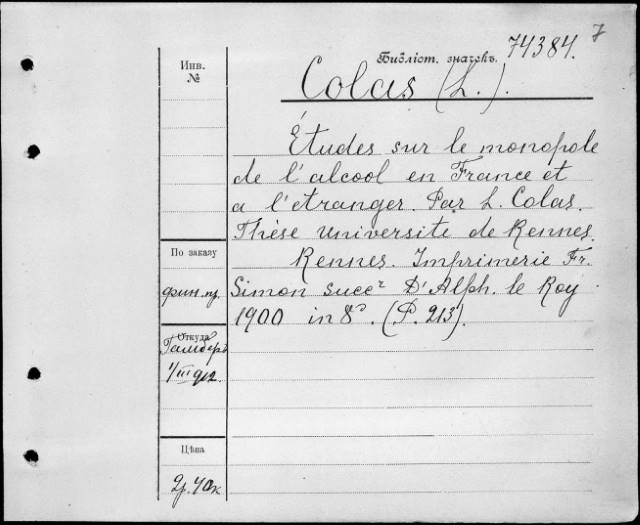 7
74384.
Библіот. значекъ.
Colas (L.).
Инв.
№
Études sur le monopole
de l'alcool en France et
a l'etranger. Par L. Colas.
Thèse université de Rennes.
Rennes. Imprimerie Fr.
Simon succr D'Alph. le Roy
1900 in 8o. (P. 213).
По заказу
фин. пр.
Откуда
Гамберъ
1/III 912.
Цѣна
2р. 40к